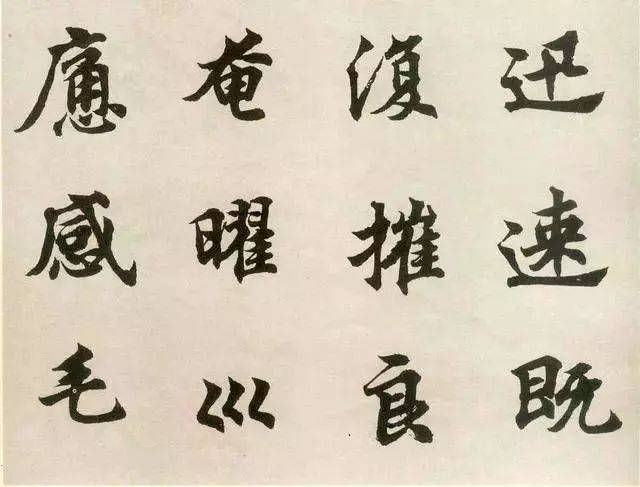 迅速既
復摧良
奄曜巛
應感毛